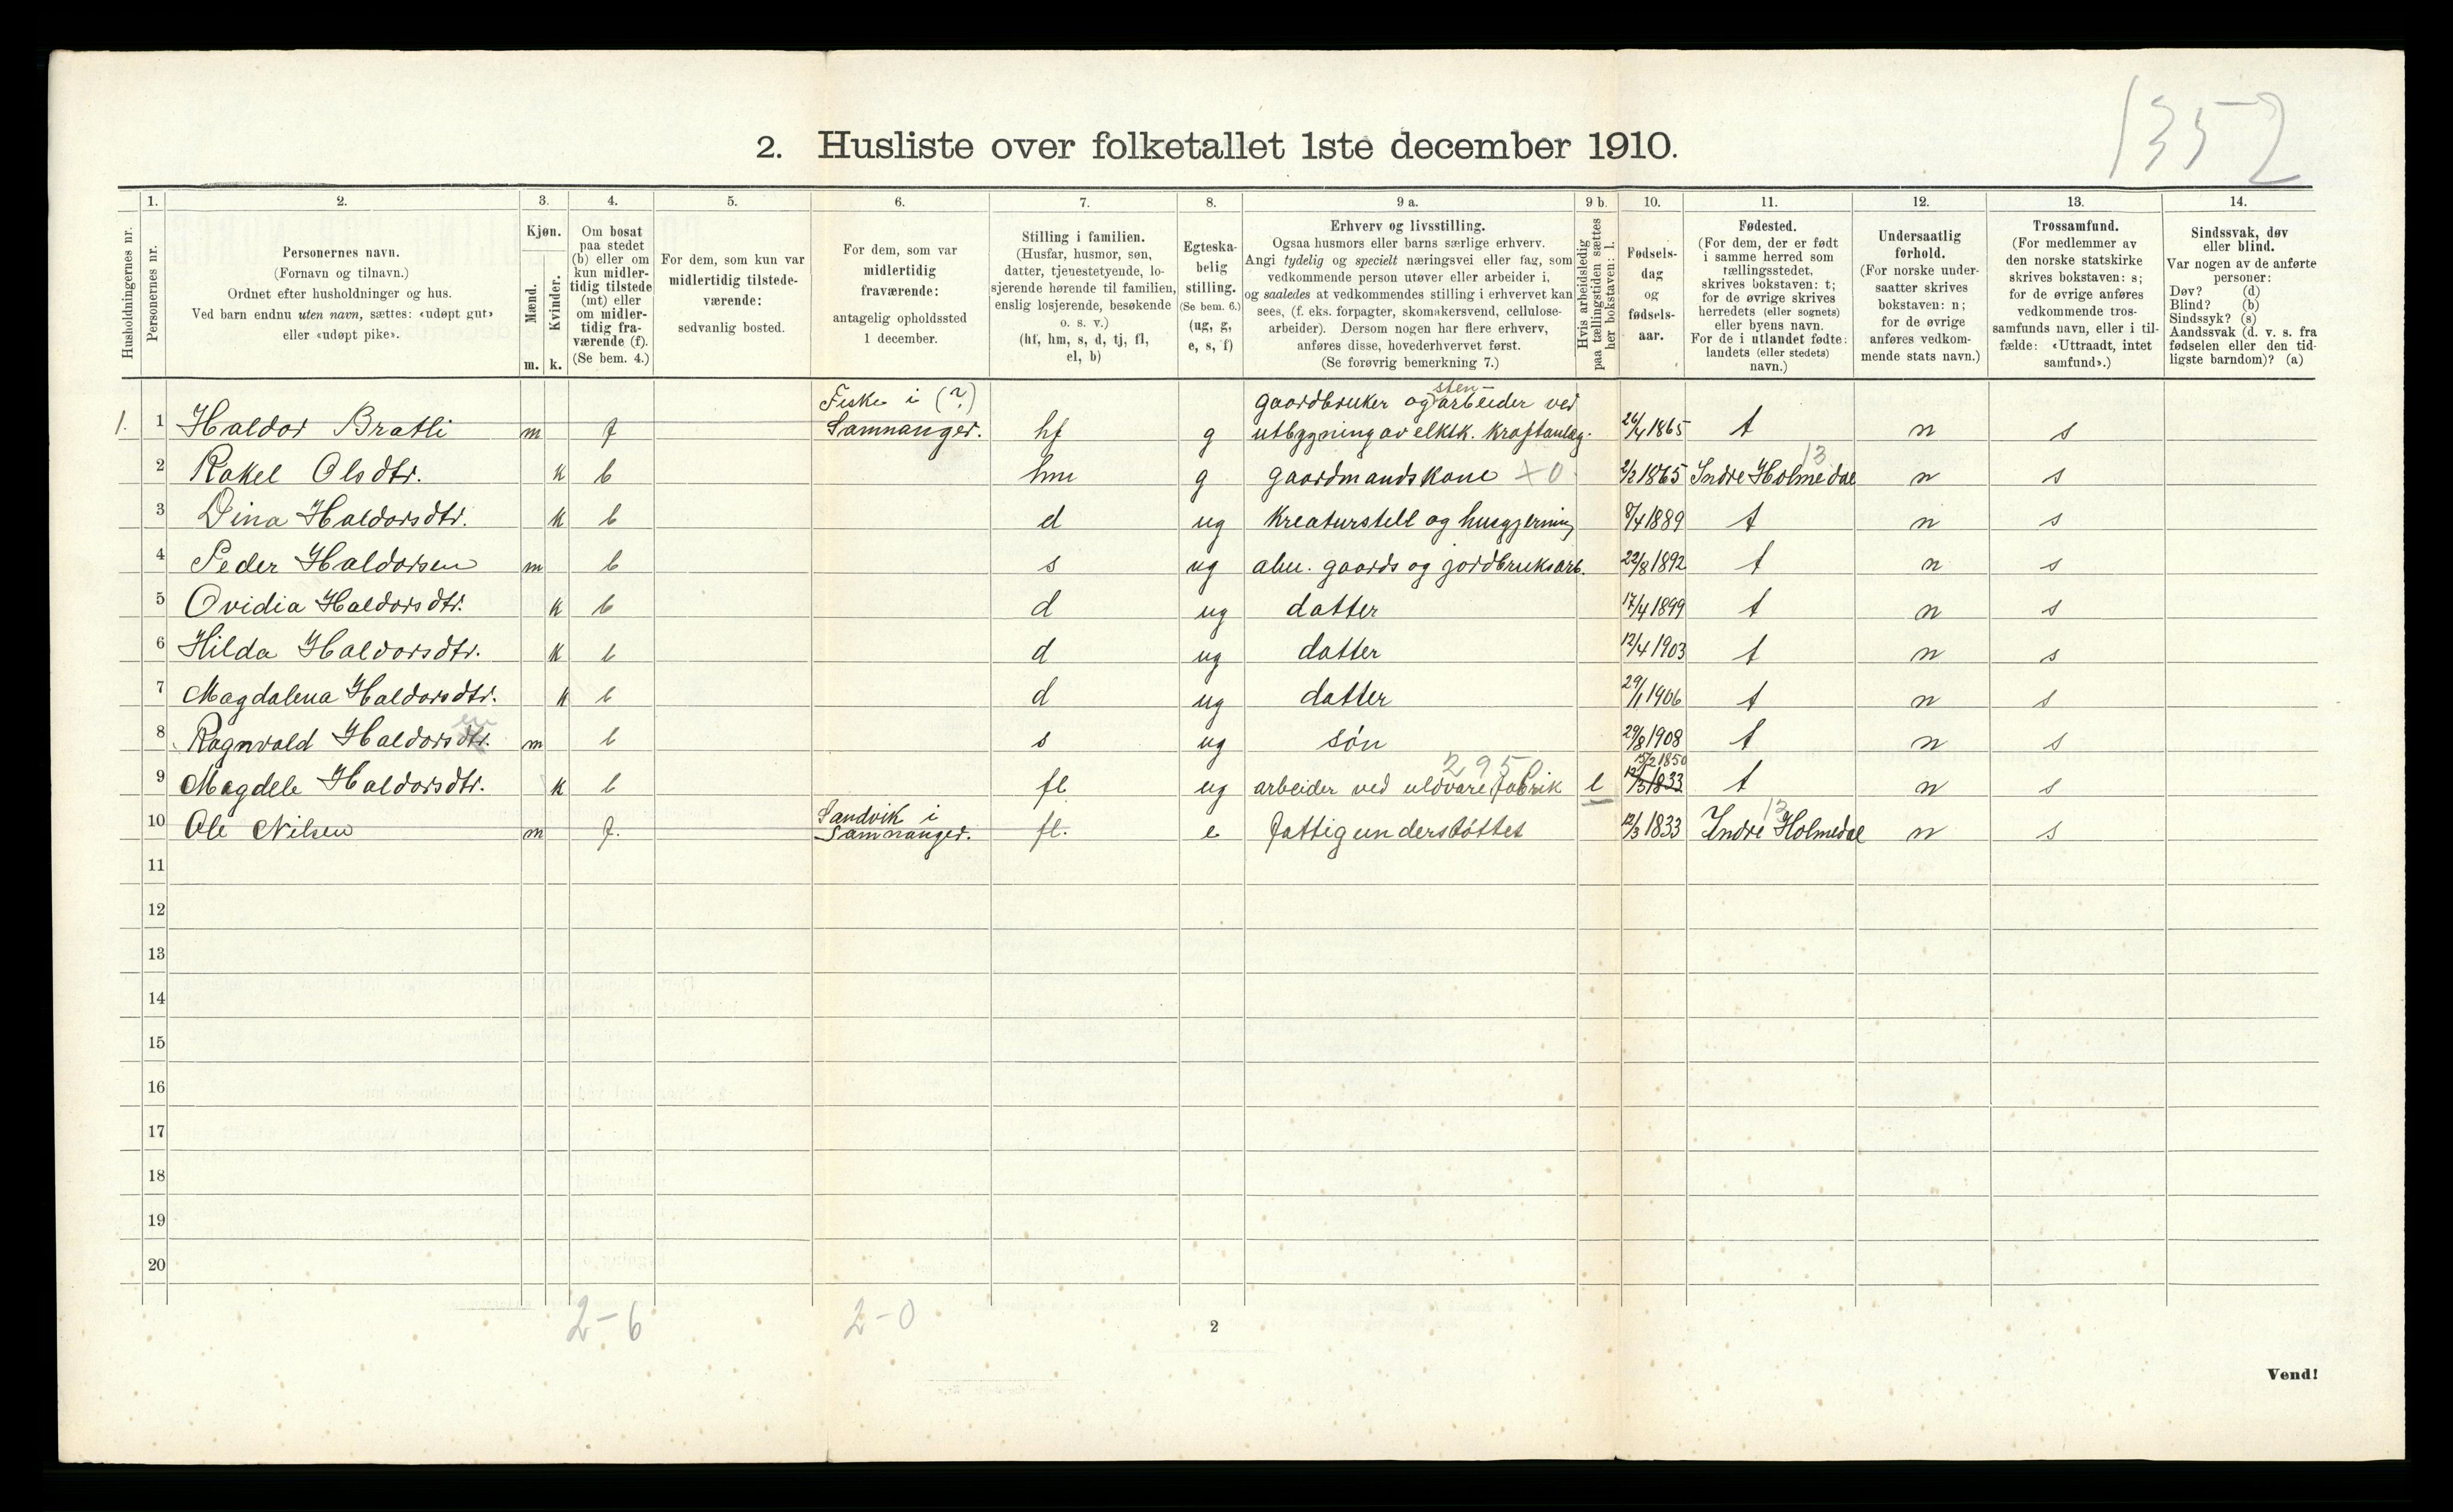 1352
2. Husliste over folketallet 1ste december 1910.
Husholdningernes nr.
1.
Personernes nr.
2.
Personernes navn.
(Fornavn og tilnavn.)
Ordnet efter husholdninger og hus.
Ved barn endnu uten navn, sættes: «udøpt gut»
eller «udøpt pike».
3.
Kjøn.
Mænd.
Kvinder.
m. k.
4.
Om bosat
paa stedet
(b) eller om
kun midler-
tidig tilstede
(mt) eller
om midler-
tidig fra-
værende (f).
(Se bem. 4.)
5.
For dem, som kun var
midlertidig tilstede-
værende:
sedvanlig bosted.
6.
For dem, som var
midlertidig
fraværende:
antagelig opholdssted
1 december.
7.
Stilling i familien.
(Husfar, husmor, søn,
datter, tjenestetyende, lo-
sjerende hørende til familien,
enslig losjerende, besøkende
o. s. v.)
(hf, hm, s, d, tj, fl,
el, b)
8.
Egteska-
belig
stilling.
(Se bem. 6.)
(ug, g,
e, s, f)
9 a.
Erhverv og livsstilling.
Ogsaa husmors eller barns særlige erhverv.
Angi tydelig og specielt næringsvei eller fag, som
vedkommende person utøver eller arbeider i,
og saaledes at vedkommendes stilling i erhvervet kan
sees, (f. eks. forpagter, skomakersvend, cellulose-
arbeider). Dersom nogen har flere erhverv,
anføres disse, hovederhvervet først.
(Se forøvrig bemerkning 7.)
9 b.
Hvis arbeidsledig
paa tællingstiden sættes
her bokstaven: l.
10.
Fødsels-
dag
og
fødsels-
aar.
11.
Fødested.
(For dem, der er født
i samme herred som
tællingsstedet,
skrives bokstaven: t;
for de øvrige skrives
herredets (eller sognets)
eller byens navn.
For de i utlandet fødte:
landets (eller stedets)
navn.)
12.
Undersaatlig
forhold.
(For norske under-
saatter skrives
bokstaven: n;
for de øvrige
anføres vedkom-
mende stats navn.)
13.
Trossamfund.
(For medlemmer av
den norske statskirke
skrives bokstaven: s;
for de øvrige anføres
vedkommende tros-
samfunds navn, eller i til-
fælde: «Uttraadt, intet
samfund».)
14.
Sindssvak, døv
eller blind.
Var nogen av de anførte
personer:
Døv? (d)
Blind? (b)
Sindssyk? (s)
Aandssvak (d. v. s. fra
fødselen eller den tid-
ligste barndom)? (a)
Fiske i (?) gaardbruker og sten-arbeider ved
1. 1 Haldor Bratli m f Samnanger. hf g utbygning av elktk. kraftanlæg. 26/4 1865 t n s
13
2 Rakel Olsdtr. k b hm g gaardmandskone +0 2/2 1865 Indre Holmedal n s
3 Dina Haldorsdtr. k b d ug kreaturstell og husgjerning 8/4 1889 t n s
4 Peder Haldorsen m b s ug alm. gaards og jordbruksarb. 22/8 1892 t n s
5 Ovidia Haldorsdtr. k b d ug datter 17/4 1899 t n s
6 Hilda Haldorsdtr. k b d ug datter 12/4 1903 t n s
7 Magdalena Haldorsdtr. k b d ug datter 29/1 1906 t n s
en
8 Ragnvald Haldorsdtr. m b s ug søn 29/8 1908 t n s
295 15/2 1850
9 Magdele Haldorsdtr. k b fl ug arbeider ved uldvarefabrik l 12/3 1833 t n s
Sandvik i 13
10 Ole Nilsen m f. Samnanger. fl. e fattigunderstøttet 12/3 1833 Indre Holmedal n s
11
12
13
14
15
16
17
18
19
20
2-6 2-0
2
Vend!